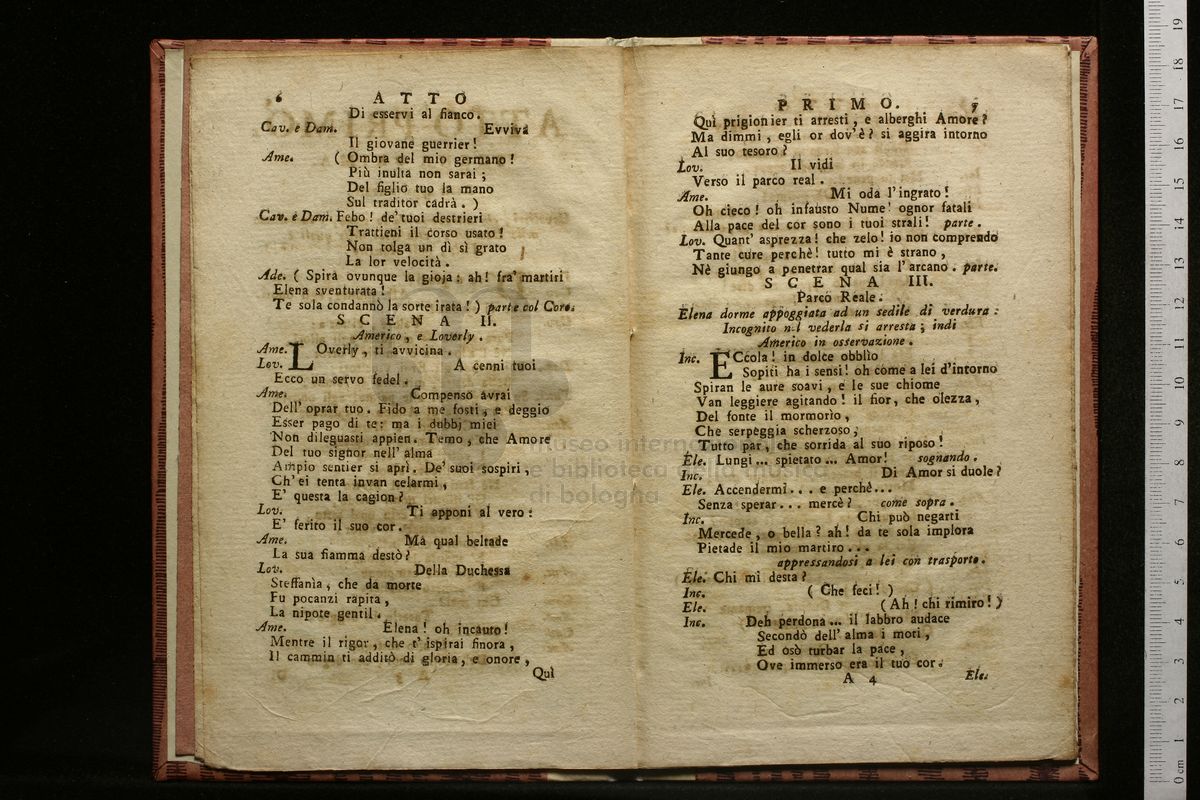 6 ATTO
Di esservi al fianco.
Cav. e Dam. Evviva
Il giovane guerrier!
Ame. ( Ombra del mio germano!
Più inulta non sarai;
Del figlio tuo la mano
Sul traditor cadrà. )
Cav. e Dam. Febo! de' tuoi destrieri
Trattieni il corso usato!
Non tolga un dì sì grato
La lor velocità.
Ade. ( Spira ovunque la gioja: ah! fra' martiri
Elena sventurata!
Te sola condannò la sorte irata! ) parte col Coro.
SCENA II.
Americo, e Loverly.
Ame. LOverly, ti avvicina.
Lov. A cenni tuoi
Ecco un servo fedel.
Ame. Compenso avrai
Dell' oprar tuo. Fido a me fosti, e deggio
Esser pago di te: ma i dubbj miei
Non dileguasti appien. Temo, che Amore
Del tuo signor nell' alma
Ampio sentier si aprì. De' suoi sospiri,
Ch' ei tenta invan celarmi,
E' questa la cagion?
Lov. Ti apponi al vero:
E' ferito il suo cor.
Ame. Ma qual beltade
La sua fiamma destò?
Lov. Della Duchessa
Steffanìa, che da morte
Fu pocanzi rapita,
La nipote gentil.
Ame. Elena! oh incauto!
Mentre il rigor, che t' ispirai finora,
Il cammin ti additò di gloria, e onore,
Quì
PRIMO. 7
Quì prigionier ti arresti, e alberghi Amore?
Ma dimmi, egli or dov' è? si aggira intorno
Al suo tesoro?
Lov. Il vidi
Verso il parco real.
Ame. Mi oda l' ingrato!
Oh cieco! oh infausto Nume! ognor fatali
Alla pace del cor sono i tuoi strali! parte.
Lov. Quant' asprezza! che zelo! io non comprendo
Tante cure perchè! tutto mi è strano,
Nè giungo a penetrar qual sia l' arcano. parte.
SCENA III.
Parco Reale.
Elena dorme appoggiata ad un sedile di verdura:
Incognito nel vederla si arresta; indi
Americo in osservazione.
Inc. ECcola! in dolce obblìo
Sopiti ha i sensi! oh come a lei d'intorno
Spiran le aure soavi, e le sue chiome
Van leggiere agitando! il fior, che olezza,
Del fonte il mormorìo,
Che serpeggia scherzoso,
Tutto par, che sorrida al suo riposo!
Ele. Lungi... spietato... Amor! sognando.
Inc. Di Amor si duole?
Ele. Accendermi... e perchè...
Senza sperar... mercè? come sopra.
Inc. Chi può negarti
Mercede, o bella? ah! da te sola implora
Pietade il mio martiro...
appressandosi a lei con trasporto.
Ele. Chi mi desta?
Inc. ( Che feci! )
Ele. ( Ah! chi rimiro! )
Inc. Deh perdona... il labbro audace
Secondò dell' alma i moti,
Ed osò turbar la pace,
Ove immerso era il tuo cor.
A 4 Ele.
museo internazionale
e biblioteca della musica
di bologna
0 cm 1 2 3 4 5 6 7 8 9 10 11 12 13 14 15 16 17 18 19